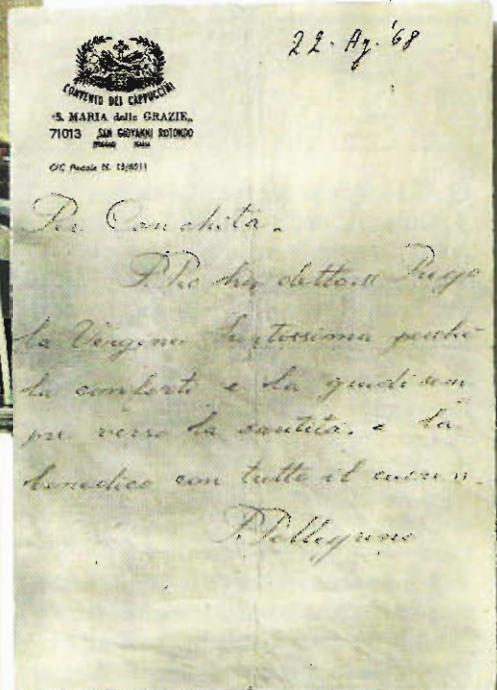 22. Ag. '68
CONVENTO DEI CAPPUCCINI
"S. MARIA delle GRAZIE"
71013 SAN GIOVANNI ROTONDO
C/C Postale N.
Per Conchita.
P. Pio ha detto: "Prego
la Vergine Santissima perchè
la conforti e la guidi sem
pre verso la santità. e la
benedico con tutto il cuore".
P. Pellegrino